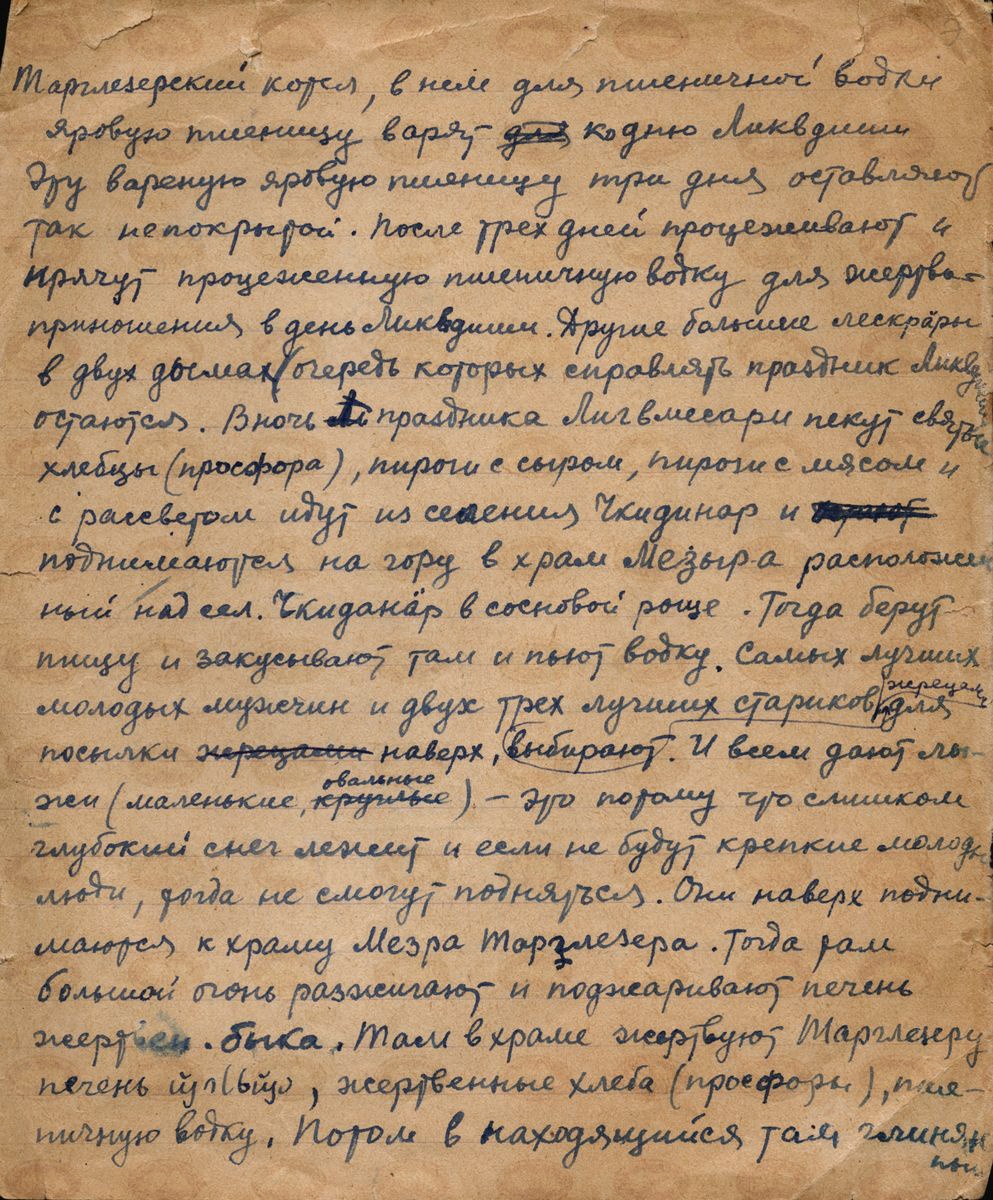 Тарглезерский котел, в нем для пшеничной водки
яровую пшеницу варят для ко дню Ликвдиши
Эту вареную яровую пшяницу три дня оставляют
так непокрытой. После трех дней процеживают и
прячут процеженную пшеничную водку для жертво-
приношения в день Ликвдиши. Другие большие лескӓры
в двух домах (очередь которых справлять праздник Ликвдиши
остаются. В ночь праздника Лигвмесари пекут святые
хлебцы (просфора), пироги с сыром, пироги с мясом и
с рассветом идут из селения Чкидинар и
поднимаются на гору в храм Мезыра расположен
ный над сел. Чкиданӓр в сосновой роще. Тогда берут
пищу и закусывают там и пьют водку. Самых лучших
молодых мужчин и двух трех лучших стариков жрецами для
посылки жрецами наверх, выбирают. И всем дают лы-
жи (маленькие, круглые овальные) – это потому что слишком
глубокий снег лежит и если не будут крепкие молоды
люди, тогда не смогут подняться. Они наверх подни-
маются к храму Мезра Тарглезера. Тогда там
большой огонь разжигают и поджаривают печень
жертвен. быка. Там в храме жертвуют Тарглезеру
печень, жертвенные хлеба (просфоры), пше-
ничную водку. Потом в находящийся там глинян
ный